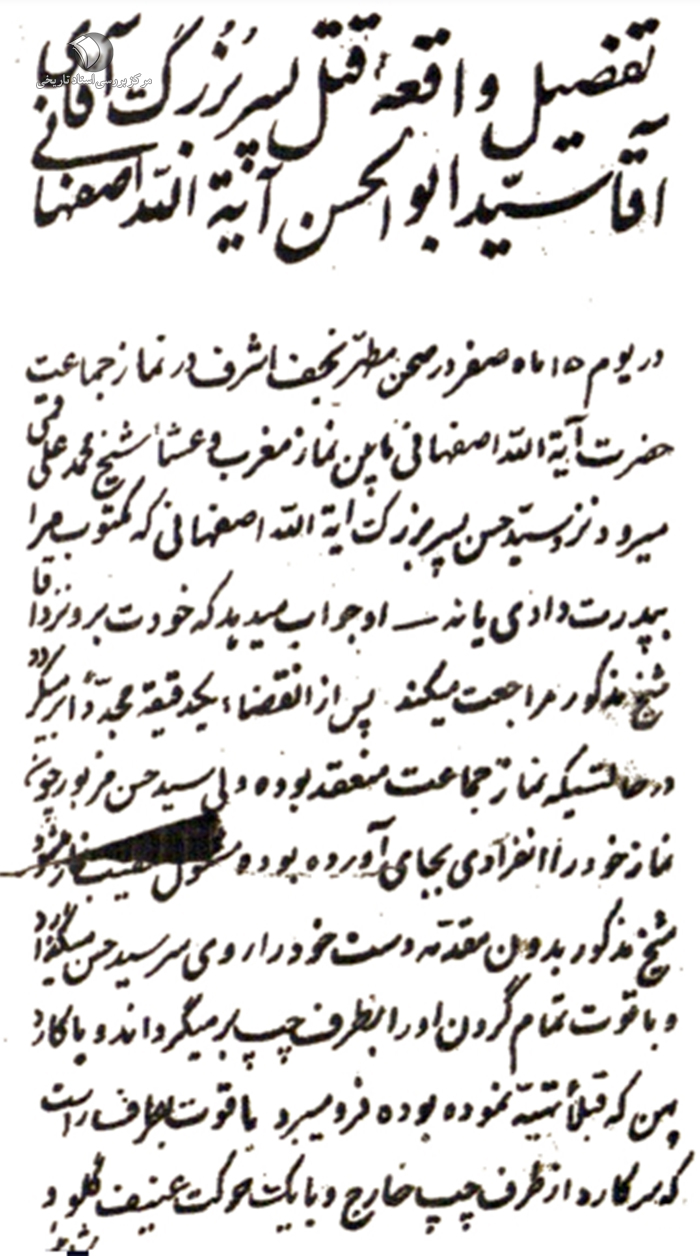 مرکز بررسی اسناد تاریخی
تفصیل واقعهٔ قتل پسر بزرگ آقای
آقا سیّد ابوالحسن آیة اللّه اصفهانی
در یوم ۱۵ ماه صفر در صحن مطهّر نجف اشرف در نماز جماعت
حضرت آیة اللّه اصفهانی مابین نماز مغرب و عشاء شیخ محمد علی قمی
میرود نزد سیّد حسن پسر بزرگ آیة اللّه اصفهانی که مکتوب مرا
بپدرت دادی یا نه ـ او جواب میدهد که خودت برو نزد آقا
شیخ مذکور مراجعت میکند پس از انقضاء یکدقیقه مجدّداً بر میگردد
در حالتیکه نماز جماعت منعقد بوده ولی سید حسن مزبور چون
نماز خود را انفرادی بجای آورده بوده مشغول تعقیب نماز
شیخ مذکور بدون مقدّمه دست خود را روی سر سید حسن میگذارد
و با قوت تمام گردن او را بطرف چپ بر میگرداند و با کارد
پهن که قبلاً تهیّه نموده بوده فرو میبرد با قوت بطرف راست
که سر کارد از طرف چپ خارج و با یک حرکت عنیف گلو و